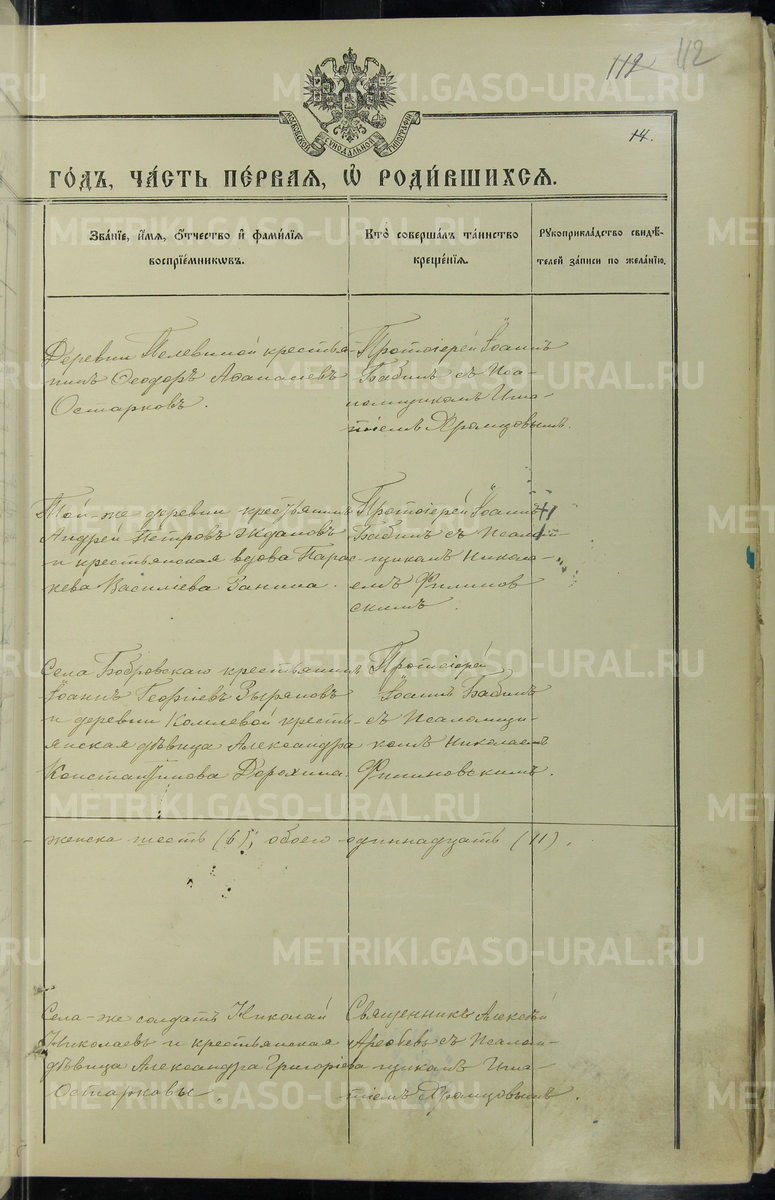 112 112
14.
МОСКОВСКОЙ СѴНОДАЛЬНОЙ ТИПОГРАФІИ
ГОДЪ, ЧАСТЬ ПЕРВАЯ, Ѡ РОДИВШИХСЯ.
Званіе, имя, отчество и фамилія
воспріемниковъ.
Кто совершалъ таинство
крещенія.
Рукоприкладство свидѣ-
телей записи по желанію.
Деревни Пелевиной крестья-
нинъ Ѳеодоръ Аѳанасіевъ
Остарковъ.
Протоіерей Іоаннъ
Бабинъ съ Иса-
ломщикомъ Игна-
тіемъ Храмцовымъ.
Той-же деревни крестьянинъ
Андрей Петровъ Ждановъ
и крестьянская вдова Парас-
кева Василіева Ванина.
Протоіерей Іоаннъ
Бабинъ съ Исалом-
щикомъ Никола-
емъ Филинов
скимъ.
Села Бобровскаго крестьянинъ
Іоаннъ Георгіевъ Зыряновъ
и деревни Комлевой кресть-
янская дѣвица Александра
Константинова Дорохина.
Протоіерей
Іоаннъ Бабинъ
съ Исаломщи-
комъ Николаемъ
Филиновскимъ.
женска шесть (6), обоего одиннадцать (11).
Села-же солдатъ Николай
Николаевъ и крестьянская
дѣвица Александра Григоріева
Остарковы.
Священникъ Алексѣй
Арефьевъ съ Исалом-
щикомъ Игна-
тіемъ Храмцовымъ.
METRIKI.GASO-URAL.RU